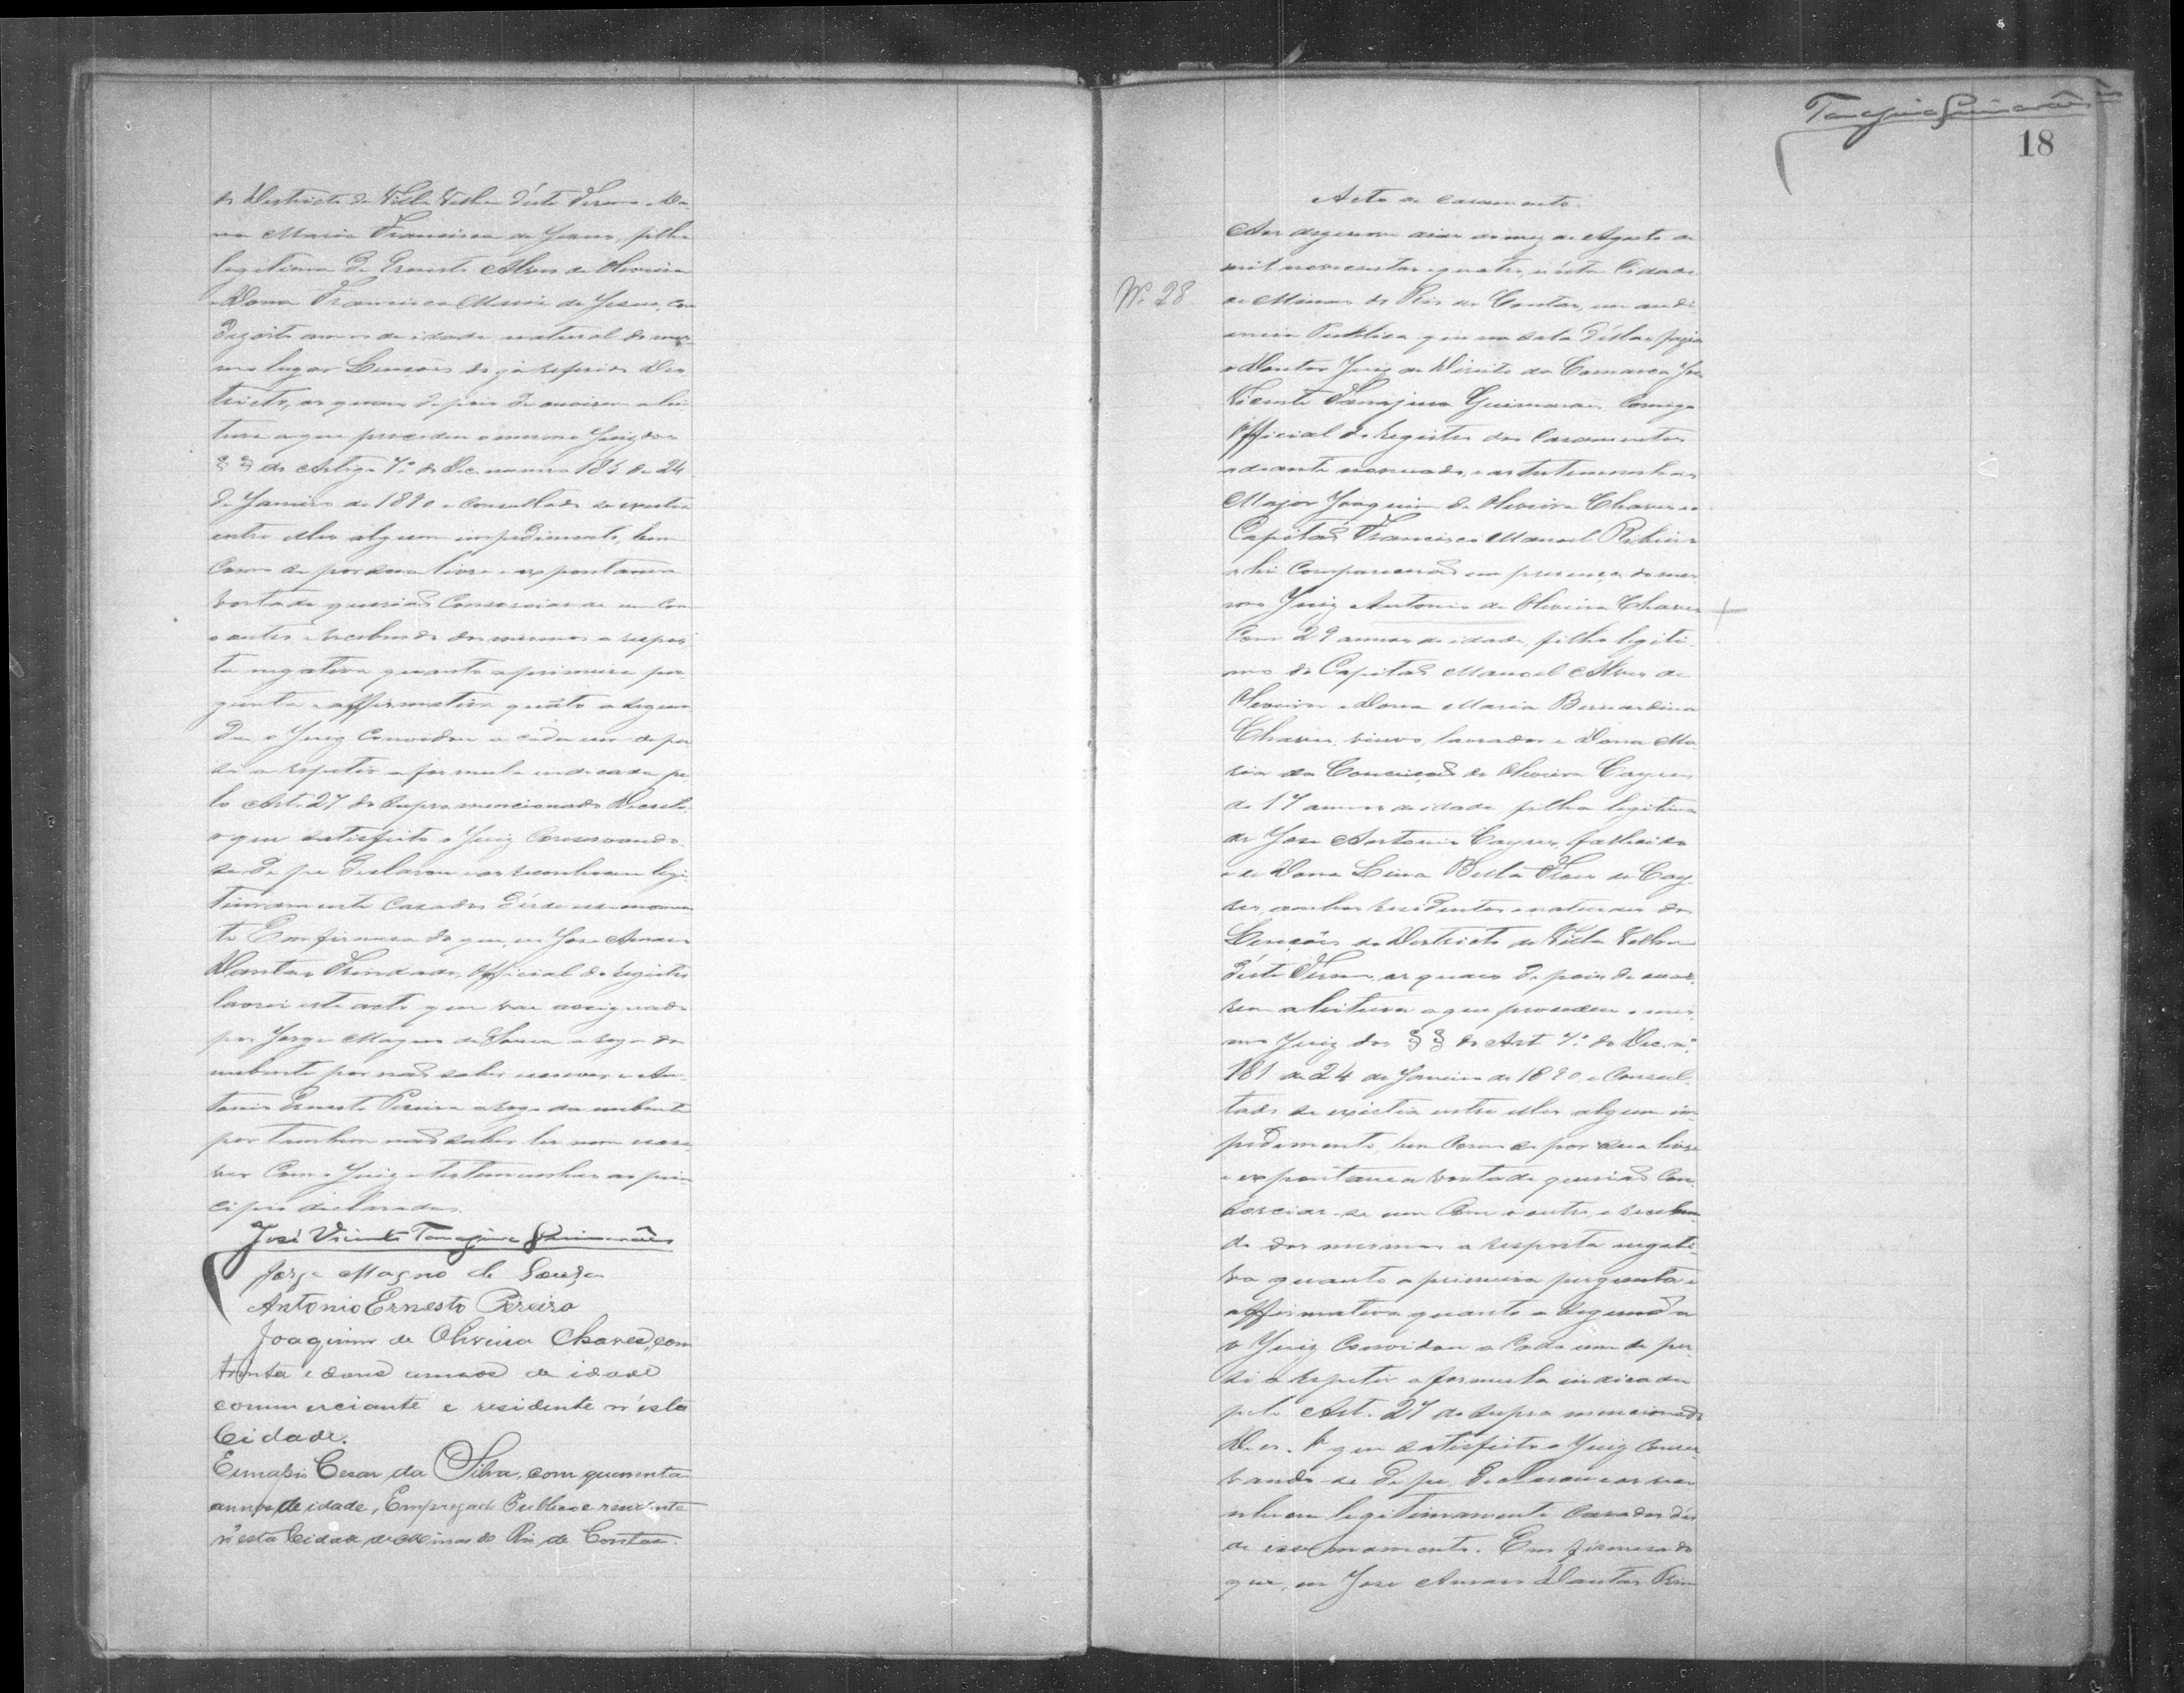 do Districto de Villa Velha d'este Termo e Do
na Maria Francisca de Jesus, filha
legitima de Ernesto Alves de Oliveira
e Dona Francisca Maria de Jesus, com
dezoito annos de idade natural do mes-
mo lugar Lençoes do já referido Dis
tricto, os quaes depois de ouvirem a lei
tura a que procedeu o mesmo Juiz dos
§ § do Artigo 7º do Dec. numero 181 de 24
de Janeiro de 1890 e consultado se existia
entre elles algum impedimento, bem
como se por sua livre e expontanea
vontade queriaõ consorciar-se um com
o outro e recebendo dos mesmos a respos
ta negativa quanto a primeira per-
gunta e affirmativa quãto a segun
da, o Juiz convidou a cada um de per
si a repetir a formula indicada pe
lo Art. 27 do supra mencionado Decreto,
o que satisfeito o Juiz conservando-
se de pé declarou e os reconheceu legi-
timamente casados d'êsde esse momen
to Em firmesa do que, eu Jose Amaro
Dantas Trindade, Official do Registro
lavrei este acto que vae assignado
por Jorge Magno de Sousa a rogo do
nubente por naõ saber escrever e An-
tonio Ernesto Pereira a rogo da nubente
por tambem naõ saber ler nem escre
ver com o Juiz e testemunhas ao prin
cipio declaradas.
José Vicente Tanajura Guimarães
Jorge Magno de Souza
Antonio Ernesto Pereira
Joaquim de Oliveira Chaves, com
trinta e dous annos de idade
commerciante e residente n'esta
Cidade.
Cesar da Silva, com quarenta
annos de idade, Empregado Publico e residente
n'esta Cidade de Minas do Rio de Contas.
Tanajura Guimarães
18
Acto de casamento.
Aos dezenove dias do mez de Agosto de
mil novecentos e quatro, n'esta Cidade
Nº 28
de Minas do Rio de Contas, em audi
encia Publica que na sala d'ellas fazia
o Doutor Juiz de Direito da Comarca José
Vicente Tanajura Guimarães, Comigo
Official do Registro dos Casamentos
adeante nomeado, e as testemunhas
Major Joaquim de Oliveira Chaves e
Capitaõ Francisco Manoel Ribeiro
ahi compareceraõ em presença do mes
mo Juiz Antonio de Oliveira Chaves
com 29 annos de idade, filho legiti
mo do Capitaõ Manoel Alves de
Oliveira e Dona Maria Bernardina
Chaves, viuvo, lavrador e Dona Ma
ria da Conceiçaõ de Oliveira Cayres
de 17 annos de idade filha legitima
de Jose Antonio Cayres, fallecido
e de Dona Lina Bella Flor de Cay-
res, ambos residentes e naturaes dos
Lençoes do Districto de Villa Velha
d'este Termo, os quaes depois de ouvi-
rem a leitura a que procedeu o mes
mo Juiz dos § § do Art 7º do Dec. nº
181 de 24 de Janeiro de 1890 e Consul-
tado se existia entre elles algum im
pedimento, bem como se por sua livre
e expontanea vontade queriaõ con-
sorciar-se um com o outro, e receben-
do dos mesmos a resposta negati-
va quanto a primeira pergunta e
affirmativa quanto a segunda
o Juiz convidou a cada um de per
si a repetir a formula indicada
pelo Art. 27 do supra mencionado
Dec. O que satisfeito o Juiz conser-
vando-se de pé, declarou e os reco
nheceu legitimamente casados dês-
de esse momento. Em firmesa do
que, eu Jose Amaro Dantas Trin